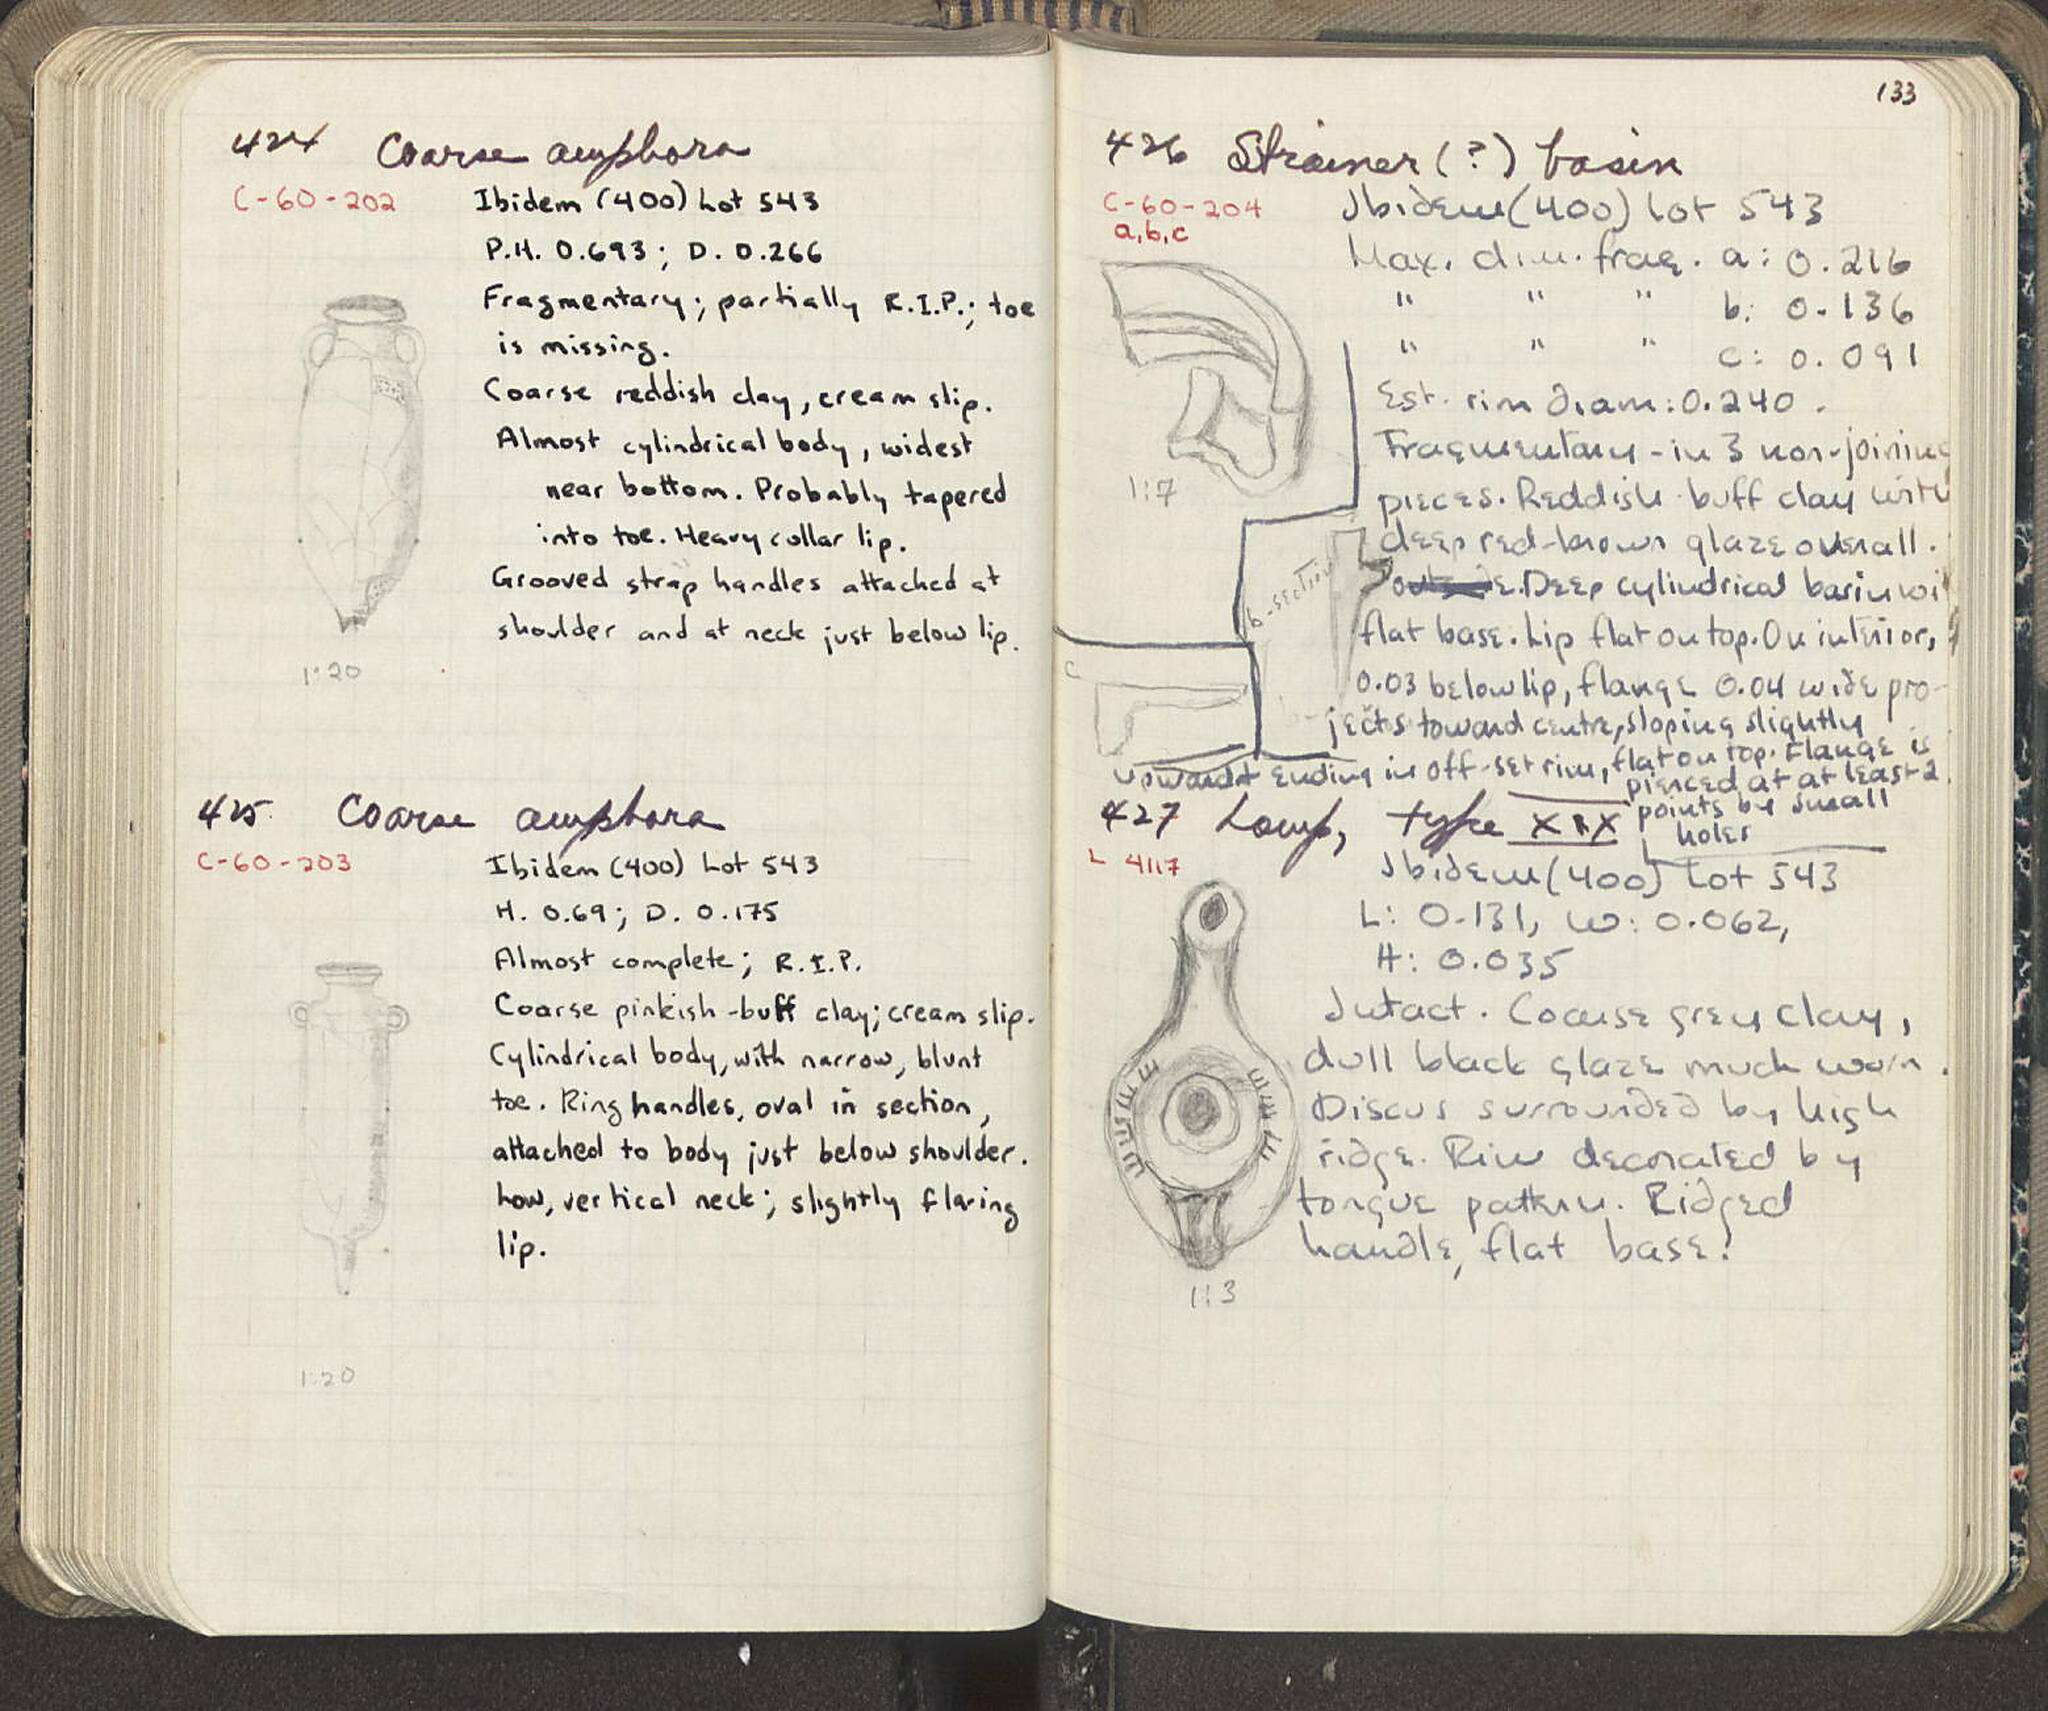 424 Coarse amphora
C-60-202
Ibidem (400) Lot 543
P.H. 0.693; D. 0.266
Fragmentary; partially R.I.P.; toe
is missing.
Coarse reddish clay, cream slip.
Almost cylindrical body, widest
near bottom. Probably tapered
into toe. Heavy collar lip.
Grooved strap handles attached at
shoulder and at neck just below lip.
1:20
425 Coarse amphora
C-60-203
Ibidem (400) Lot 543
H. 0.69; D. 0.175
Almost complete; R.I.P.
Coarse pinkish-buff clay; cream slip.
Cylindrical body, with narrow, blunt
toe. Ring handles, oval in section,
attached to body just below shoulder.
Low, vertical neck; slightly flaring
lip.
1:20
133
426 Strainer(?) basin
C-60-204
a,b,c
Ibidem (400) Lot 543
Max. dim. frag. a: 0.216
" " " b: 0.136
" " " c: 0.091
Est. rim diam: 0.240.
Fragmentary - in 3 non-joining
pieces. Reddish buff clay with
deep red-brown glaze overall.
Deep cylindrical basin wi
flat base. Lip flat on top. On interior,
0.03 below lip, flange 0.04 wide pro-
jects toward centre, sloping slightly
upward ending in off-set rim, flat on top. Flange is
pierced at at least 2
points by small
holes
1:7
b-section
c
427 Lamp, type XIX
L 4117
Ibidem (400) Lot 543
L: 0.131, W: 0.062,
H: 0.035
Intact. Coarse grey clay,
dull black glaze much worn.
Discus surrounded by high
ridge. Rim decorated by
tongue pattern. Ridged
handle, flat base.
1:3